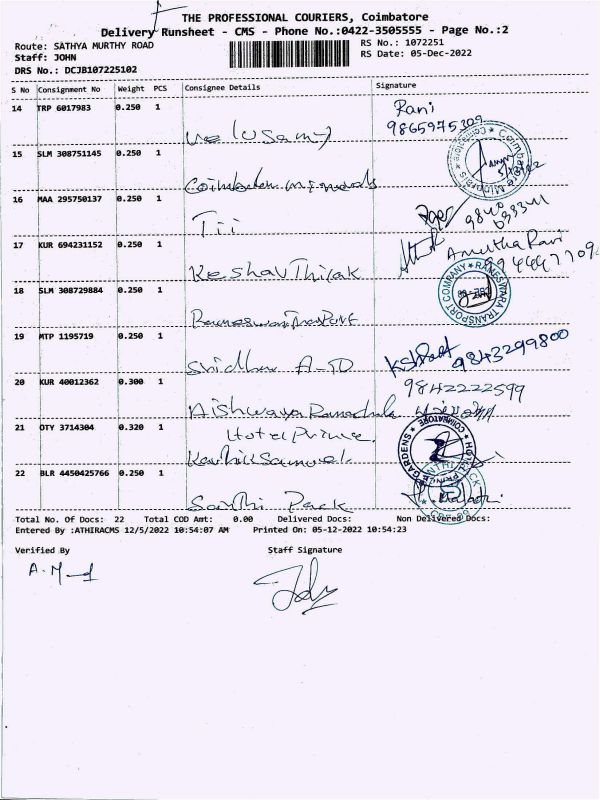 THE PROFESSIONAL COURIERS, Coimbatore
Delivery Runsheet - CMS - Phone No.:0422-3505555 - Page No.:2
Route: SATHYA MURTHY ROAD
RS No.: 1072251
Staff: JOHN
RS Date: 05-Dec-2022
DRS No.: DCJB107225102
S No Consignment No Weight PCS Consignee Details Signature
14 TRP 6017983 0.250 1 Rani
9865975309
15 SLM 308751145 0.250 1
Coimbatore minerals
16 MAA 295750137 0.250 1
Tii
9840
17 KUR 694231152 0.250 1 Amutha Rani
Keshav Thilak
18 SLM 308729884 0.250 1 COMPANY ★ RAMESWARA TRANSPORT
19 MTP 1195719 0.250 1
Sridhar 9843299800
20 KUR 40012362 0.300 1 9842222599
Aishwarya
21 OTY 3714304 0.320 1 GARDENS ★ COIMBATORE ★
Hotel Prince
22 BLR 4450425766 0.250 1
Santhi Pack
Total No. Of Docs: 22 Total COD Amt: 0.00 Delivered Docs: Non Delivered Docs:
Entered By :ATHIRACMS 12/5/2022 10:54:07 AM Printed On: 05-12-2022 10:54:23
Verified By Staff Signature